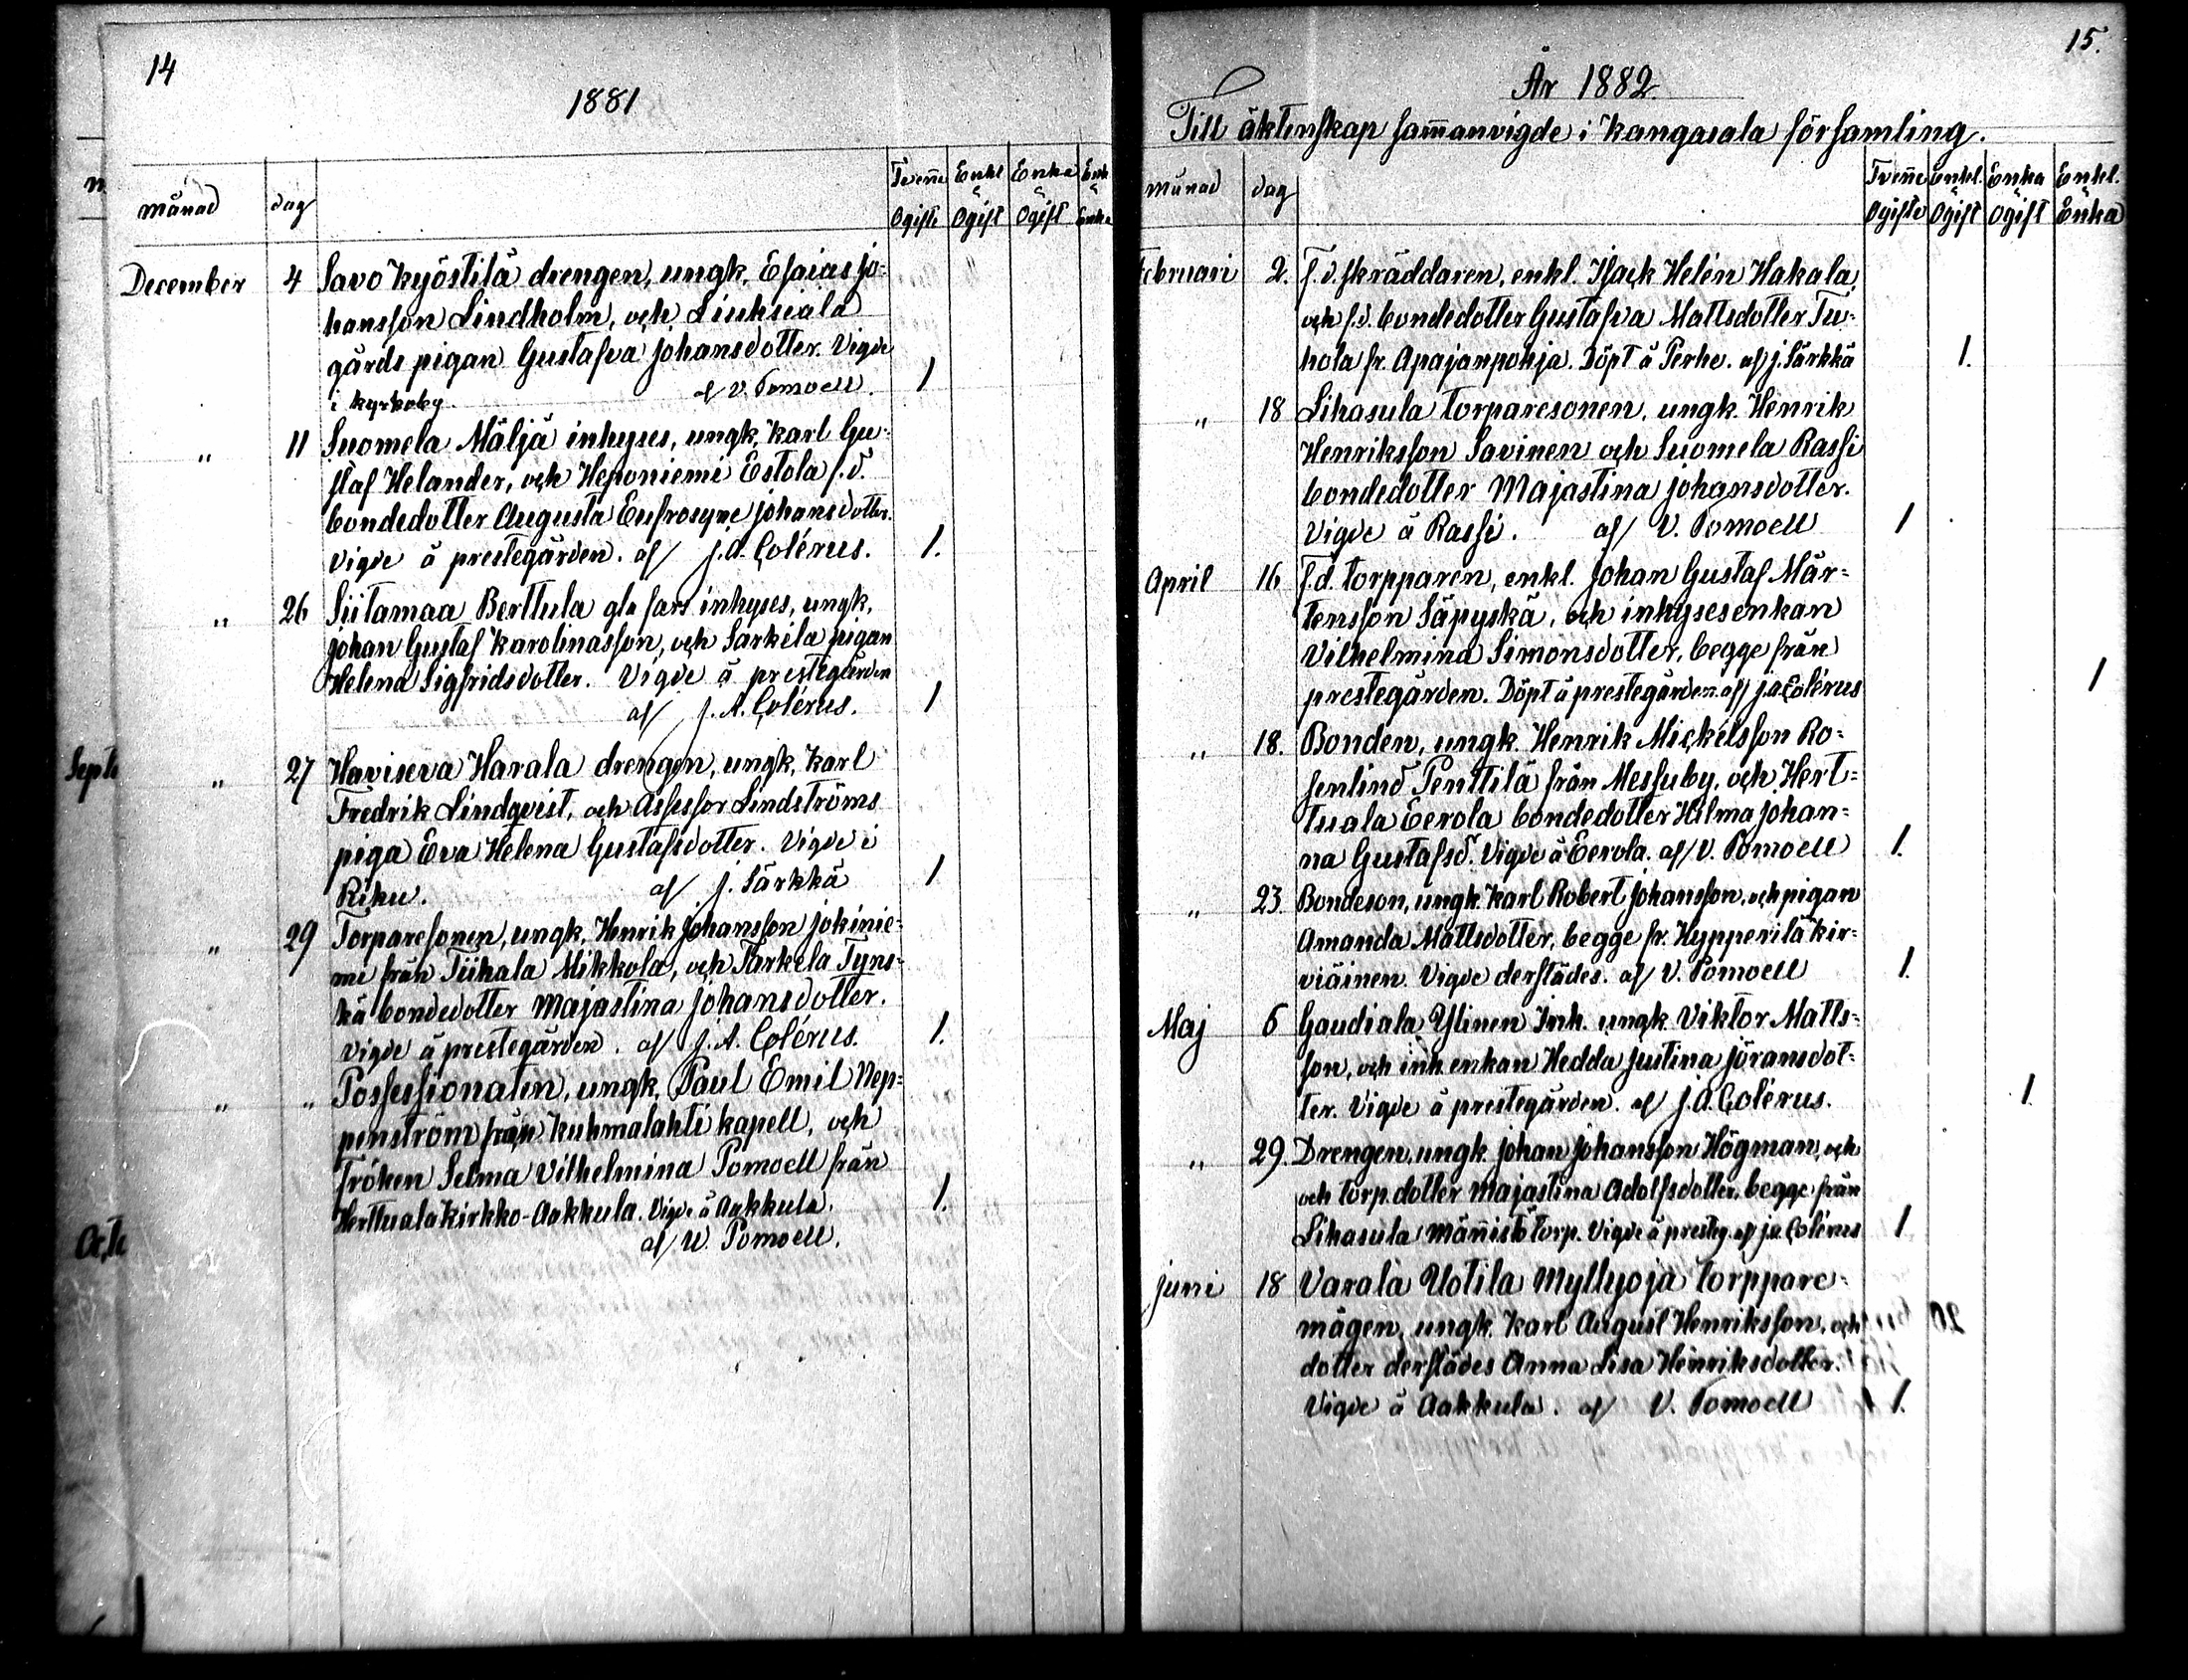 14
1881
Månad dag Tvenne Ogifte Enkl. o Ogift Enka o Ogift Enk o Enka
December 4 Savo Kyöstilä drengen, ungk, Esaias Jo-
hansson Lindholm, och Liuksiala
gårds pigan Gustafva Johansdotter. Vigde
i kyrkoby. af V. Pomoell. 1
" 11 Suomela Mäljä inhyses, ungk, Karl Gu-
staf Helander, och Heponiemi Estola f.d.
bondedotter Augusta Eufrosyne Johansdotter.
Vigde å prestegården. af J.A. Colérus. 1.
" 26 Siitamaa Berttula inhyses, ungk,
Johan Gustaf Karolinasson, och Sarkela pigan
Helena Sigfridsdotter. Vigde å prestegården
af J.A. Colérus. 1
" 27 Haviseva Harala drengen, ungk, Karl
Fredrik Lindqvist, och Assessor Lindströms
piga Eva Helena Gustafsdotter. Vigde i
Riku. af J. Särkkä 1
" 29 Torparesonen, ungk, Henrik Johansson Jokinie-
mi från Tiihala Mikkola, och Tarkela Tyns-
kä bondedotter Majastina Johansdotter.
Vigde å prestegården. af J.A. Colérus. 1.
" " Possessionaten, ungk, Paul Emil Nep-
penström från Kuhmalahti kapell, och
fröken Selma Vilhelmina Pomoell från
Herttuala Kirkko-Aakkula. Vigde å Aakkula. 1.
af V. Pomoell.
Septe
Octo
15.
År 1882.
Till äktenskap sammanvigde i Kangasala församling.
Månad dag Tvenne Ogifte Enkl. o Ogift Enka o Ogift Enkl. o Enka
Februari 2. f.d. skräddaren, enkl. Isack Helén Hakala,
och f.d. bondedotter Gustafva Mattsdotter Tu-
hola fr. Apajanpohja. Döpt å Perhe. af J. Särkkä 1.
" 18 Lihasula torparesonen, ungk. Henrik
Henriksson Savinen och Suomela Rassi
bondedotter Majastina Johansdotter.
Vigde å Rassi. af V. Pomoell 1
April 16 f.d. torpparen, enkl. Johan Gustaf Mår-
tensson Säpyskä, och inhysesenkan
Vilhelmina Simonsdotter, begge från
prestegården. Döpt å prestegården. af J.A. Colérus 1
" 18. Bonden, ungk. Henrik Mickelsson Ro-
senlind Penttilä från Messuby, och Hert-
tuala Eerola bondedotter Hilma Johan-
na Gustafsd. Vigde å Eerola. af V. Pomoell 1.
" 23. Bondeson, ungk. Karl Robert Johansson, och pigan
Amanda Mattsdotter, begge fr. Hypperilä Kir-
viäinen. Vigde derstädes. af V. Pomoell 1.
Maj 6 Gaudiala Ylinen Inh. ungk. Viktor Matts-
son, och inh enkan Hedda Justina Jöransdot-
ter. Vigde å prestegården. af J.A. Colérus. 1.
" 29. Drengen, ungk. Johan Johansson Högman, och
och torp. dotter Majastina Adolfsdotter, begge från
Lihasula Männistö torp. Vigde å presteg. af J.A. Colérus 1
Juni 18 Varala Uotila Myllyoja torppare-
mågen, ungk. Karl August Henriksson, och
dotter derstädes Anna Lisa Henriksdotter.
Vigde å Aakkula. af V. Pomoell 1.